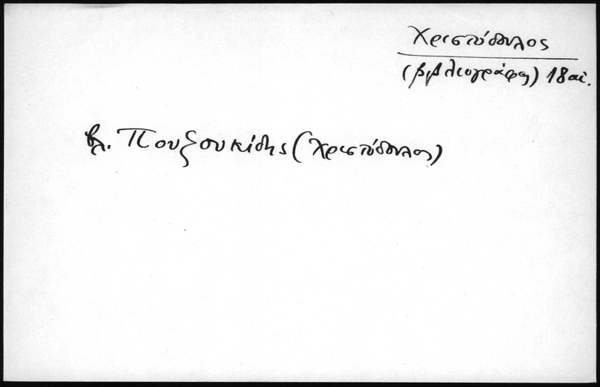 Χριστόδουλος
(βιβλιογράφος) 18 αἰ.
βλ. Πουζουκίδης (Χριστόδουλος)